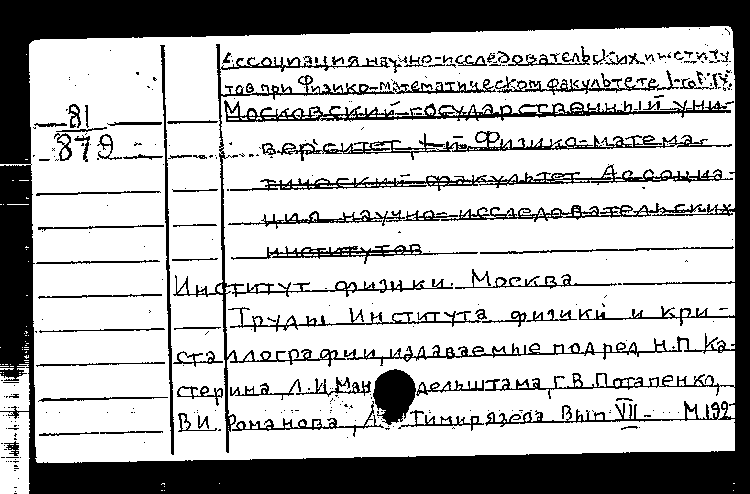 Ассоциация научно-исследовательских институ
тов при Физико-математическом факультете I-го
81
879
Московский государственный уни-
верситет, I-й. Физико-матема-
тический факультет Ассоциа-
ция научно-исследовательских
институтов
Институт физики. Москва.
Труды Института физики и кри-
сталлографии, издаваемые под ред Н.П. Ка-
стерина, Л.И. Ман дельштама, Г.В. Потапенко,
В.И. Романова, А. Тимирязева Вып VII- М 192